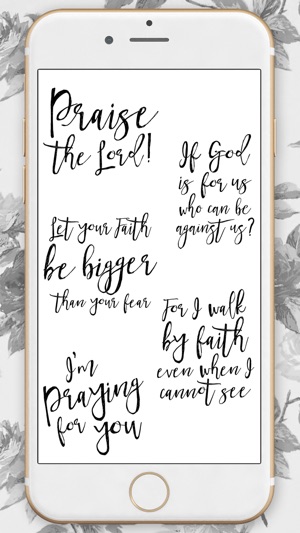 Praise
the Lord!
If God
is for us
who can be
against us?
Let your Faith
be bigger
than your fear
For I walk
by faith
even when I
cannot see
I'm
praying
for you